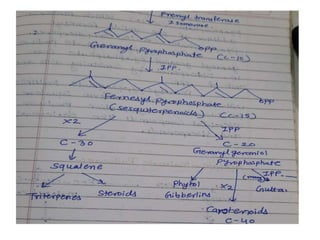 Prenyl transferase
Isomerase
OPP
Geranyl pyrophosphate (C-10)
IPP.
OPP
Fernesyl pyrophosphate
(sesquiterpenoids) (C-15)
X2 IPP
C-30 C-20
Geranyl geraniol
Squalene Pyrophosphate
IPP.
Triterpenes Steroids Phytol X2 Gutta
Gibberlins
Carotenoids
C-40